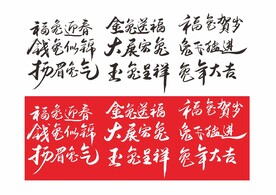 福兔迎春 金兔送福 福兔贺岁
钱兔似锦 大展宏兔 兔飞猛进
扬眉兔气 玉兔呈祥 兔年大吉
福兔迎春 金兔送福 福兔贺岁
钱兔似锦 大展宏兔 兔飞猛进
扬眉兔气 玉兔呈祥 兔年大吉